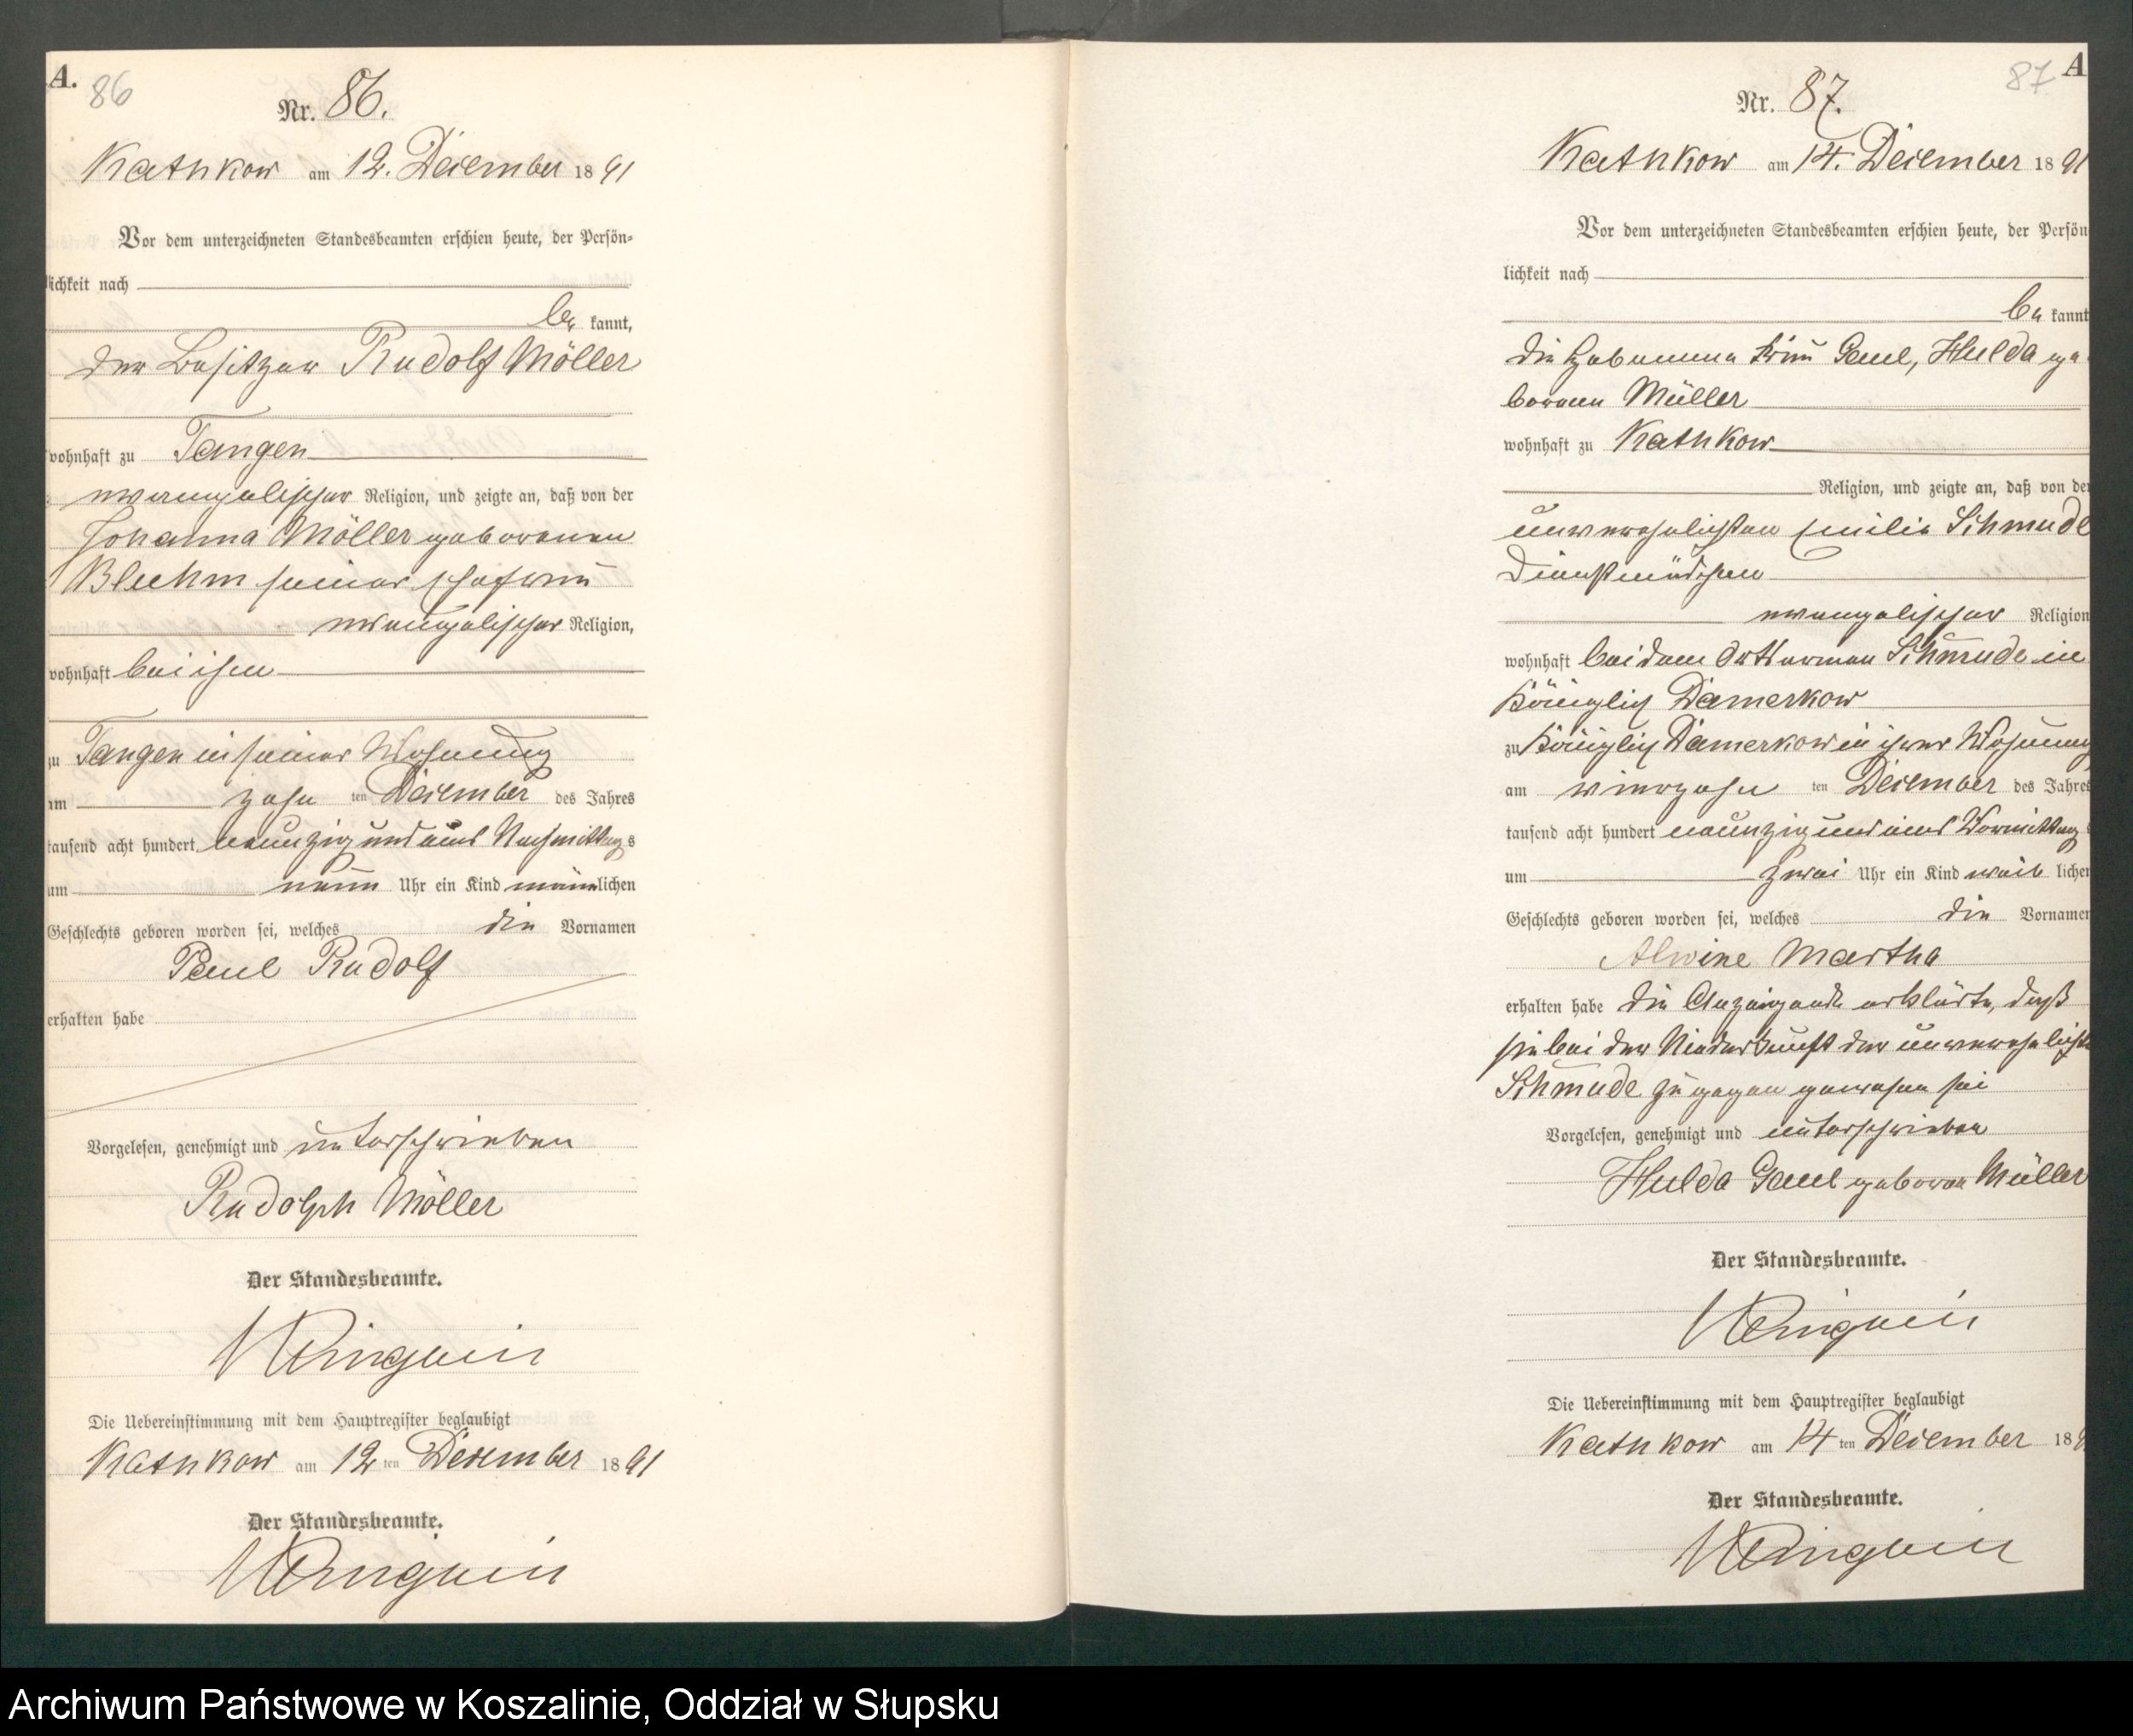 A.
86
Nr. 86.
Kathkow am 12. December 1891
Vor dem unterzeichneten Standesbeamten erschien heute, der Persön-
lichkeit nach
be kannt,
der Besitzer Rudolf Möller
wohnhaft zu Tangen
evangelischer Religion, und zeigte an, daß von der
Johanna Möller geborenen
Bluhm seiner Ehefrau
evangelischer Religion,
wohnhaft bei ihm
zu Tangen in seiner Wohnung
am zehn ten December des Jahres
tausend acht hundert neunzig und eins Nachmittags
um neun Uhr ein Kind männlichen
Geschlechts geboren worden sei, welches die Vornamen
Paul Rudolf
erhalten habe
Vorgelesen, genehmigt und unterschrieben
Rudolph Möller
Der Standesbeamte.
Die Uebereinstimmung mit dem Hauptregister beglaubigt
Kathkow am 12 ten December 1891
Der Standesbeamte.
87 A
Nr. 87.
Kathkow am 14. December 1891
Vor dem unterzeichneten Standesbeamten erschien heute, der Persön
lichkeit nach
be kannt
die Hebamme Frau Gaul, Hulda ge-
borene Müller
wohnhaft zu Kathkow
Religion, und zeigte an, daß von der
unverehelichten Emilie Schmude
Dienstmädchen
evangelischer Religion
wohnhaft bei dem Ortsarmen Schmude in
Königlich Damerkow
zu Königlich Damerkow in ihrer Wohnung
am vierzehn ten December des Jahres
tausend acht hundert neunzig und eins Vormittags
um zwei Uhr ein Kind weib lichen
Geschlechts geboren worden sei, welches die Vornamen
Alwine Martha
erhalten habe die Anzeigende erklärte, daß
sie bei der Niederkunft der unverehelichten
Schmude zugegen gewesen sei
Vorgelesen, genehmigt und unterschrieben
Hulda Gaul geborene Müller
Der Standesbeamte.
Die Uebereinstimmung mit dem Hauptregister beglaubigt
Kathkow am 14 ten December 189
Der Standesbeamte.
Archiwum Państwowe w Koszalinie, Oddział w Słupsku